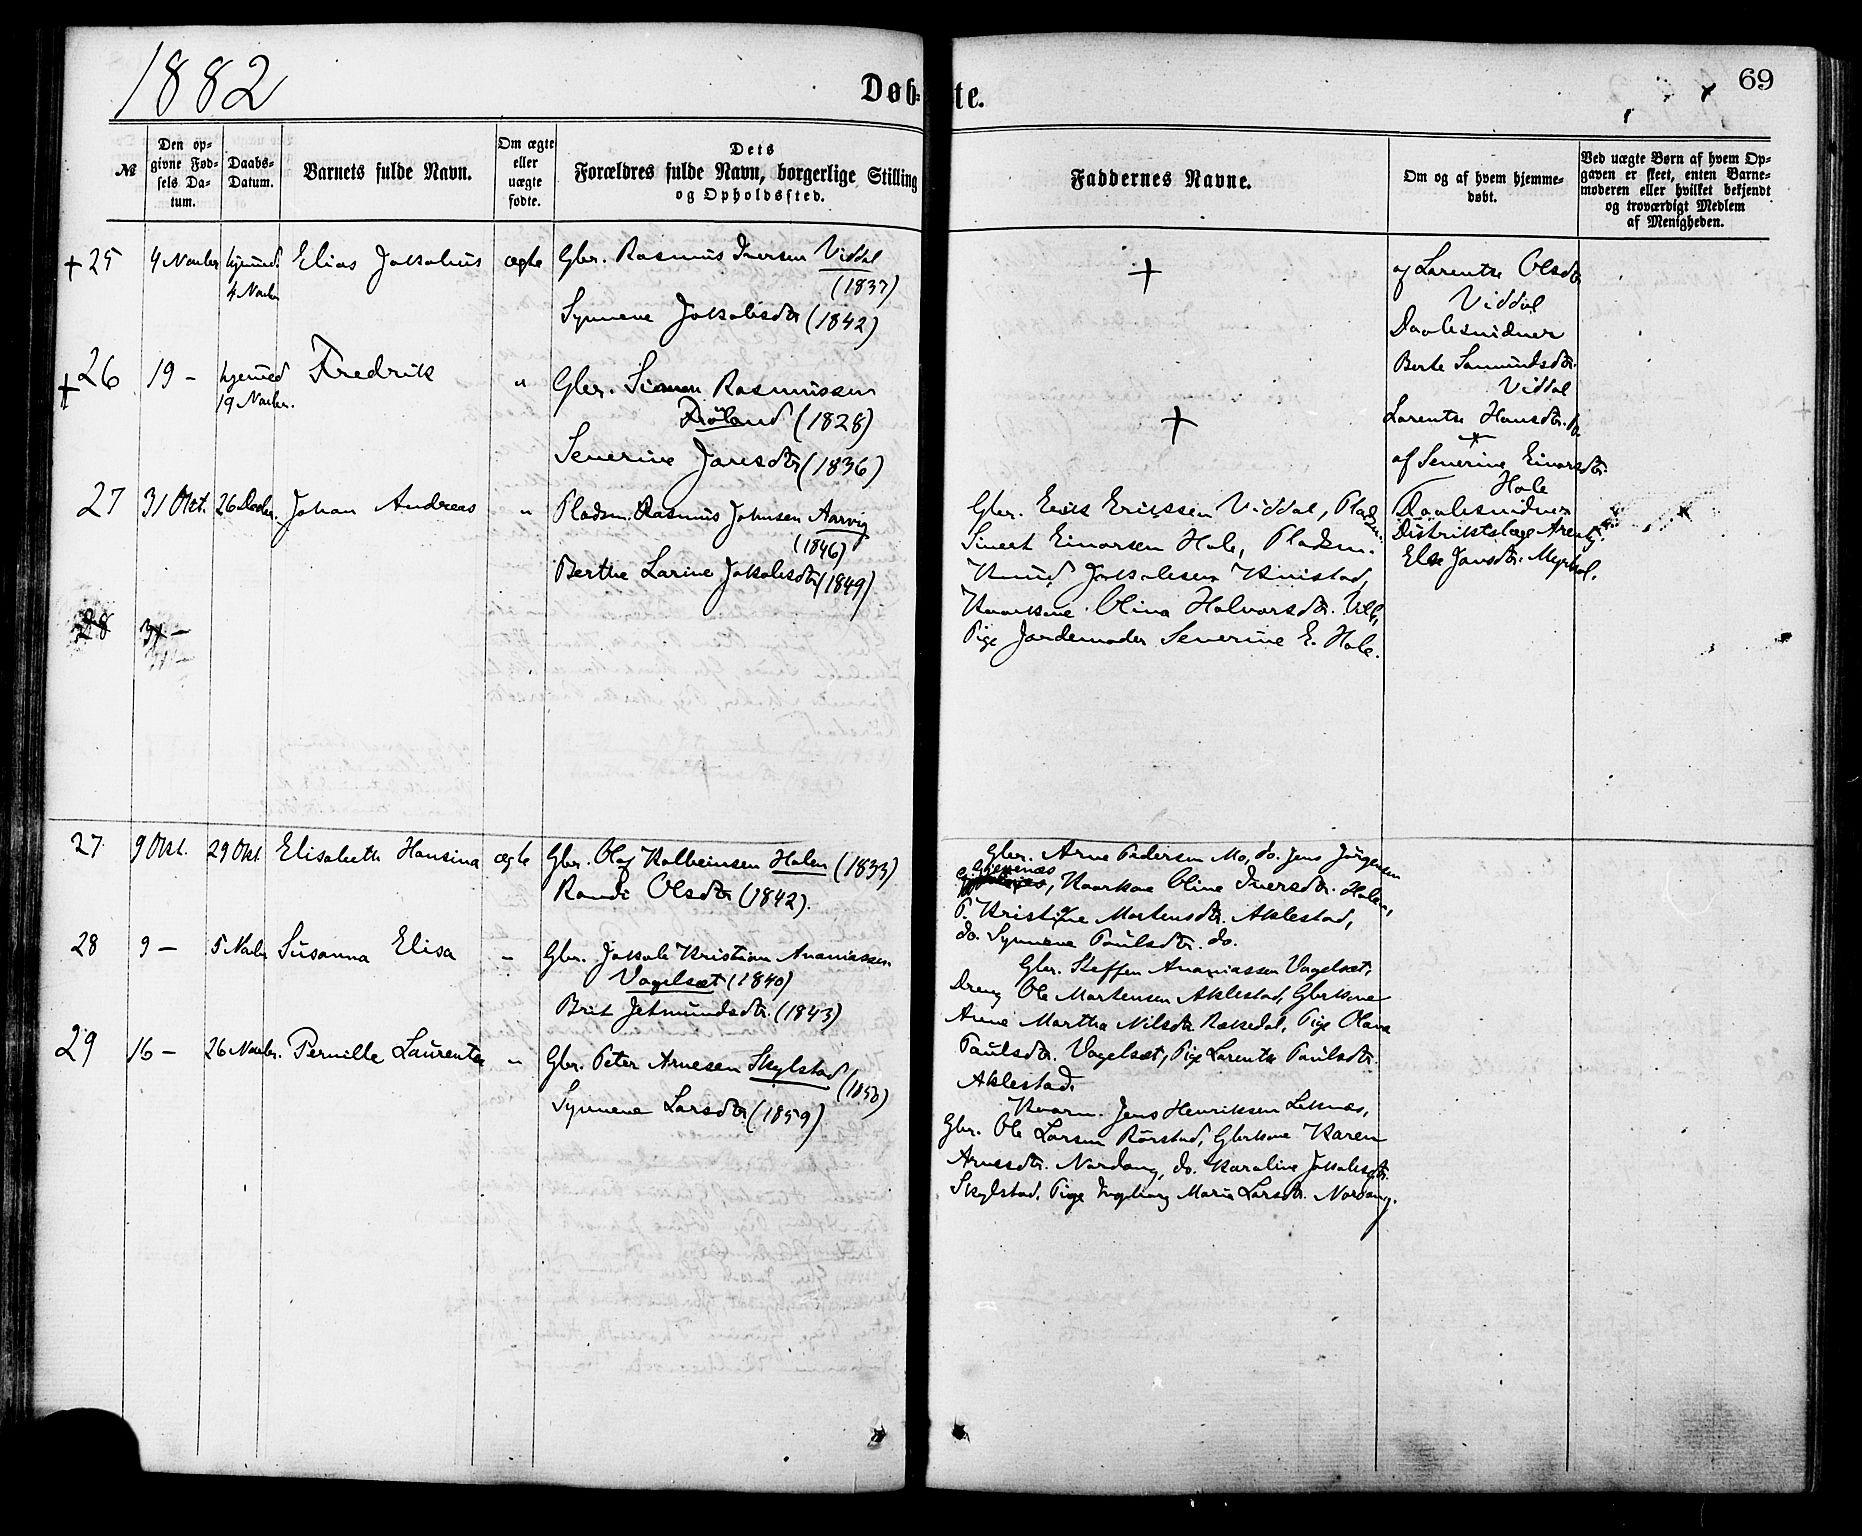 1882
Døb-te.
69
№
Den op-
givne Fød-
sels Da-
tum.
Daabs-
Datum.
Barnets fulde Navn.
Om ægte
eller
uægte
fødte.
Dets
Forældres fulde Navn, borgerlige Stilling
og Opholdssted.
Faddernes Navne.
Om og af hvem hjemme-
døbt.
Ved uægte Børn af hvem Op-
gaven er skeet, enten Barne-
moderen eller hvilket bekjendt
og troværdigt Medlem
af Menigheden.
+ 25 4 Novber hjemmed. Elias Jakobus ægte Gbr. Rasmus Iversen Viddal
4 Novbr (1837)
Synneve Jakobsdtr (1842)
+
af Larentse Olsdtr
Viddal
Daabsvidner
Berte Samundsdtr.
Viddal
Larentse Hansdtr. do.
+ 26 19 - hjemmed Fredrik " Gbr. Simon Rasmussen
19 Novbr. (1828)
Severine Jansdtr (1836)
+
af Severine Einarsdtr.
Hole
Daabsvidner
Distriktslæge
Else Jansdtr. Myrbol.
27 31 Okt. 26 Decbr. Johan Andreas " Pladsm. Rasmus Johnsen Aarvig
(1846)
Berthe Larine Jakobsdtr (1849)
Gbr. Erik Eriksen Viddal, Pladsm.
Sivert Einarsen Hole, Pladsm.
Knud Jakobsen Kvistad,
Kaarkone Olina Halvorsdtr.
Pige Jordemoder Severine E. Hole.
28 31 -
27 9 Okt. 29 Okt. Elisabeth Hansina ægte Gbr. Olaf Kolbeinsen Holen (1833)
Randi Olsdtr (1842).
Gbr. Arne Pedersen Mo, do. Jens Jørgensen
, Kaarkone Oline Iversdtr. Holen,
P. Kristine Mortensdtr. Aklestad,
do. Synneve Paulsdtr. do.
28 9 - 5 Novbr Susanna Elisa - Gbr. Jakob Kristian Ananiassen
Vagelsæt (1840)
Brit Jetmundsdtr. (1843)
Gbr. Steffen Ananiassen Vagelsæt,
Dreng Ole Mortensen Aklestad, Gbrkone
Anne Martha Nilsdtr. Rekkedal, Pige Olava
Paulsdtr. Vagelsæt, Pige Larentse Paulsdtr.
Aklestad.
29 16 - 26 Novbr. Pernille Laurentse " Gbr. Peter Arnesen Skylstad
(1850)
Synneve Larsdtr (1859)
Kaarm. Jens Henriksen Leknæs,
Gbr. Ole Larsen Rørstad, Gbrkone Karen
Arnesdtr. Nordang, do. Karoline Jakobsdtr.
Skylstad. Pige Ingeborg Marie Larsdtr. Nordang.